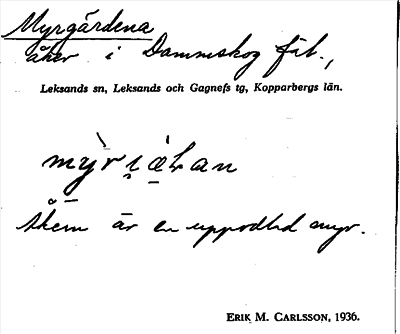 Myrgårdena
åker i Dammskog fäb.,
Leksands sn, Leksands och Gagnefs tg, Kopparbergs län.
är en uppodlad myr.
ERIK M. CARLSSON, 1936.